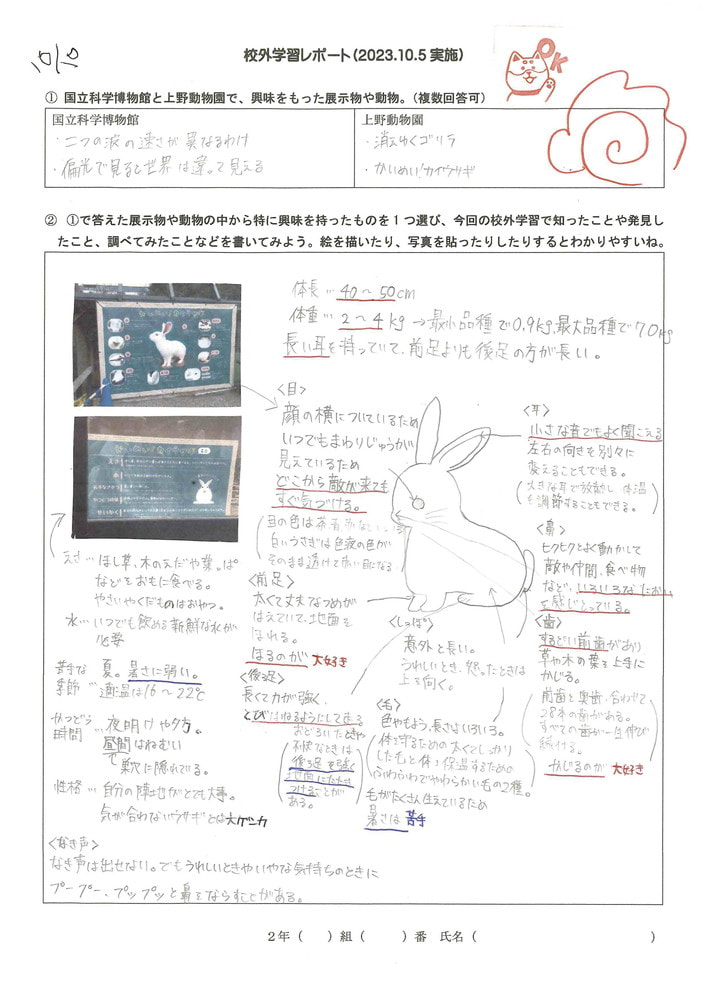 10/10
校外学習レポート(2023.10.5 実施)
OK
① 国立科学博物館と上野動物園で、興味をもった展示物や動物。(複数回答可)
国立科学博物館
・二つの波の速さが異なるわけ
・偏光で見ると世界は違って見える
上野動物園
・消えゆくゴリラ
・かいめい!カイウサギ
② ①で答えた展示物や動物の中から特に興味を持ったものを1つ選び、今回の校外学習で知ったことや発見し
たこと、調べてみたことなどを書いてみよう。絵を描いたり、写真を貼ったりしたりするとわかりやすいね。
体長… 40～50cm
体重… 2～4kg →最小品種で0.9kg、最大品種で7.0kg
長い耳を持っていて、前足よりも後足の方が長い。
<目>
顔の横についているため
いつでもまわりじゅうが
見えているため
どこから敵が来ても
すぐ気づける。
目の色は茶
白いうさぎは色
そのまま透けて赤い目になる
<耳>
小さな音でもよく聞こえる
左右の向きを別々に
変えることもできる。
(大きな耳で放熱し、体温
を調節することもできる。)
<鼻>
ヒクヒクとよく動かして
敵や仲間、食べ物
など、いろいろなにおい
を感じとっている。
<歯>
するどい前歯があり
草や木の葉を上手に
かじる。
(前歯と奥歯、合わせて
28本の歯がある。
すべての歯が一生伸び
続ける。)
かじるのが大好き
えさ…ほし草、木のえだや葉。
などをおもに食べる。
やさいやくだものはおやつ。
水…いつでも飲める新鮮な水が
必要
苦手な
季節… 夏。暑さに弱い。
適温は16～22℃
かつどう
時間… 夜明けや夕方。
昼間はねむい
で巣穴に隠れている。
性格… 自分の陣地がとても大事。
気が合わないウサギとは大ゲンカ
<前足>
太くて丈夫なつめが
はえていて、地面を
ほれる。
ほるのが大好き
<後ろ足>
長くて力が強く、
とびはねるようにして走る
おどろいたときや
不快なときは
後ろ足を強く
地面にたたき
つけることが
ある。
<しっぽ>
意外と長い。
うれしいとき、怒ったときは
上を向く。
<毛>
色やもよう、長さはいろいろ。
(体を守るための太くてしっかり
したもと体を保温するための
ふわふわでやわらかいもの2種。)
毛がたくさん生えているため
暑さは苦手
<なき声>
なき声は出せない。でもうれしいときやいやな気持ちのときに
プープー、プップッと鼻をならすことがある。
2年( )組( )番 氏名( )